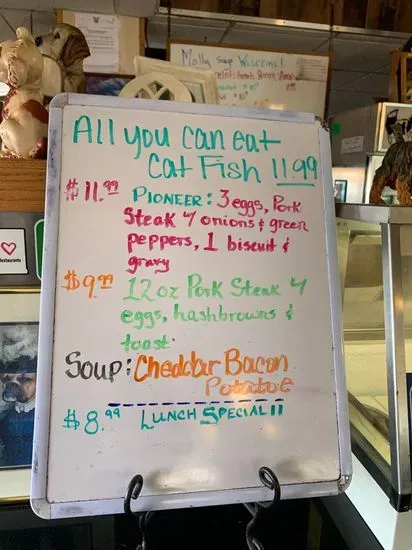 Molly says Welcome!
All you can eat
Cat Fish 11.99
$11.99 PIONEER: 3 eggs, Pork
Steak w/ onions & green
peppers, 1 biscuit &
gravy
$9.99 12 oz Pork Steak w/
eggs, hashbrowns &
toast
Soup: Cheddar Bacon
Potatoe
$8.99 LUNCH SPECIAL!!
Restaurants